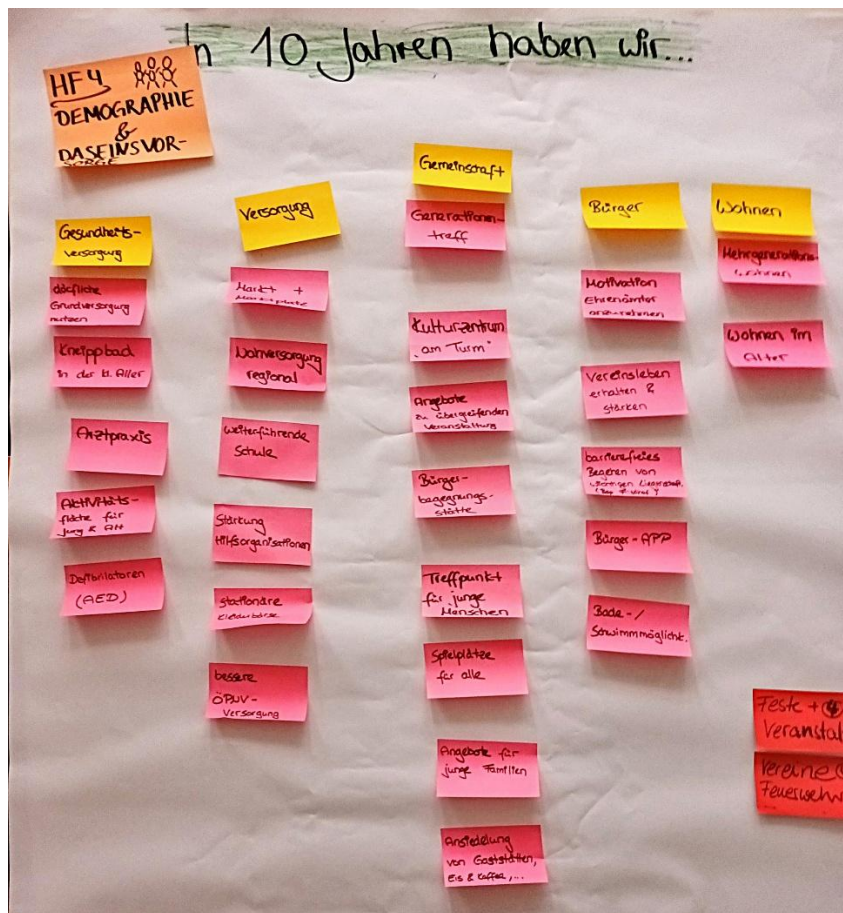 In 10 Jahren haben wir...
HF4
DEMOGRAPHIE
&
DASEINSVOR-
SORGE
Gesundheits-
versorgung
dörfliche
Grundversorgung
nutzen
Kneippbad
in der kl. Aller
Arztpraxis
Aktivitäts-
fläche für
jung & Alt
Defibrilatoren
(AED)
Versorgung
Markt +
Nahversorgung
regional
weiterführende
Schule
Stärkung
Hilfsorganisationen
stationäre
Kleiderbörse
bessere
ÖPNV-
Versorgung
Gemeinschaft
Generationen-
treff
Kulturzentrum
"am Turm"
Angebote
zu übergreifenden
Veranstaltung
Bürger-
begegnungs-
stätte
Treffpunkt
für junge
Menschen
Spielplätze
für alle
Angebote für
junge Familien
Ansiedelung
von Gaststätten,
Eis & Kaffee,...
Bürger
Motivation
Ehrenämter
anzunehmen
Vereinsleben
erhalten &
stärken
barrierefreies
Begehren von
wichtigen
Bürger-APP
Bade-/
Schwimmmöglichk.
Wohnen
Mehrgenerations-
wohnen
Wohnen im
Alter
Feste +
Veranstal
Vereine
Feuerwehr